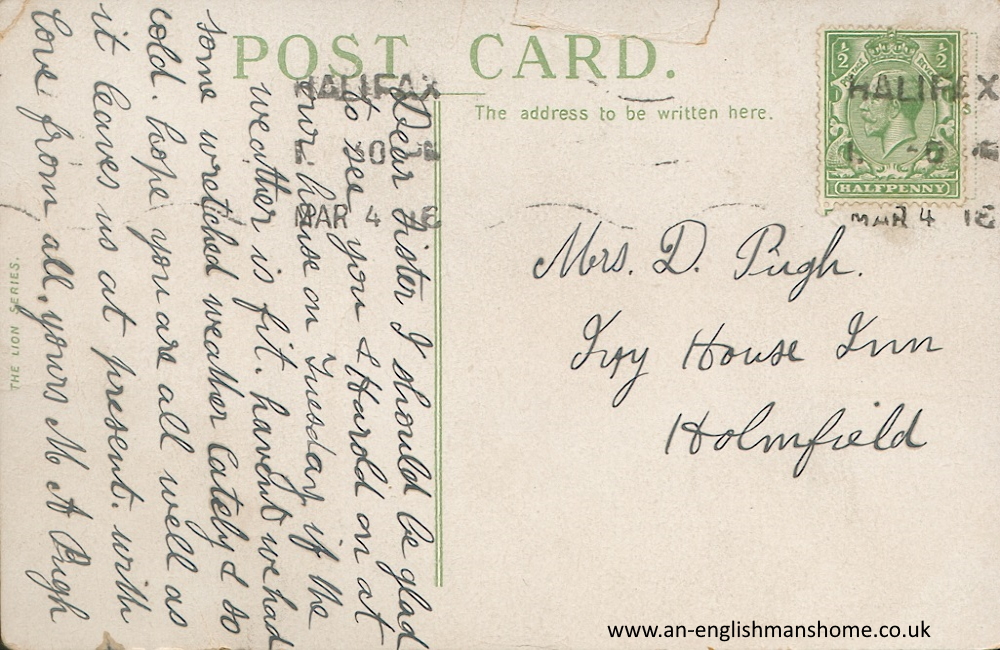 POST CARD.
The address to be written here.
HALIFAX
MAR 4 16
HALIFAX
MAR 4 16
½ ½
HALFPENNY
Mrs. D. Pugh.
Ivy House Inn
Holmfield
Dear Sister I should be glad
to see you & Harold on at
our house on Tuesday if the
weather is fit. havent we had
some wretched weather Lately & so
cold. hope you are all well as
it leaves us at present. with
Love from all. yours M A Pugh
THE LION SERIES.
www.an-englishmanshome.co.uk